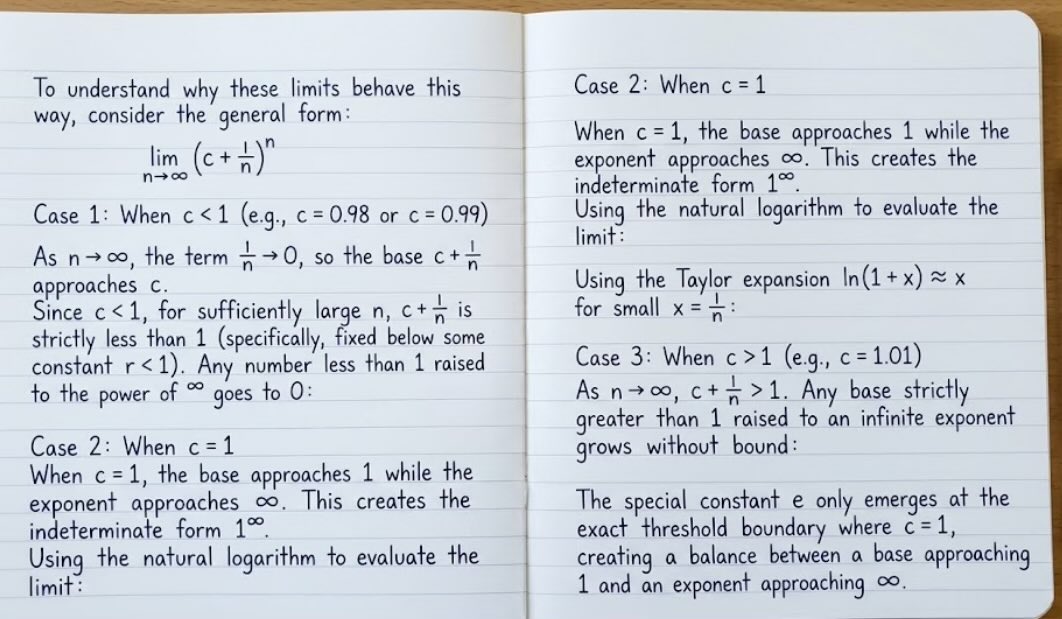 To understand why these limits behave this
way, consider the general form:
lim n→∞ (c + 1/n)^n
Case 1: When c < 1 (e.g., c = 0.98 or c = 0.99)
As n → ∞, the term 1/n → 0, so the base c + 1/n
approaches c.
Since c < 1, for sufficiently large n, c + 1/n is
strictly less than 1 (specifically, fixed below some
constant r < 1). Any number less than 1 raised
to the power of ∞ goes to 0:
Case 2: When c = 1
When c = 1, the base approaches 1 while the
exponent approaches ∞. This creates the
indeterminate form 1^∞.
Using the natural logarithm to evaluate the
limit:
Case 2: When c = 1
When c = 1, the base approaches 1 while the
exponent approaches ∞. This creates the
indeterminate form 1^∞.
Using the natural logarithm to evaluate the
limit:
Using the Taylor expansion ln(1 + x) ≈ x
for small x = 1/n:
Case 3: When c > 1 (e.g., c = 1.01)
As n → ∞, c + 1/n > 1. Any base strictly
greater than 1 raised to an infinite exponent
grows without bound:
The special constant e only emerges at the
exact threshold boundary where c = 1,
creating a balance between a base approaching
1 and an exponent approaching ∞.